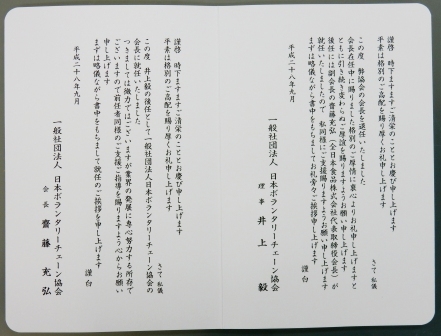 謹啓　時下ますますご清栄のこととお慶び申し上げます
平素は格別のご高配を賜り厚くお礼申し上げます
さて　私儀
この度　弊協会の会長を退任いたしました
会長在任中に賜りました格別のご厚情に衷心よりお礼申し上げますと
ともに引き続き変わらぬご厚誼を賜りますようお願い申し上げます
後任には副会長の齋藤充弘（全日本食品株式会社代表取締役会長）が
就任いたしましたので　私同様にご支援賜りますようお願い申し上げます
まずは略儀ながら書中をもちましてお礼旁々ご挨拶申し上げます
謹白
平成二十八年九月
一般社団法人　日本ボランタリーチェーン協会
理事　井上　毅
謹啓　時下ますますご清栄のこととお慶び申し上げます
平素は格別のご高配を賜り厚くお礼申し上げます
さて　私儀
この度　井上毅の後任として一般社団法人日本ボランタリーチェーン協会の
会長に就任いたしました
つきましては微力ではございますが業界の発展に専心努力する所存で
ございますので前任者同様のご支援ご指導を賜りますよう心からお願い
申し上げます
まずは略儀ながら書中をもちまして就任のご挨拶を申し上げます
謹白
平成二十八年九月
一般社団法人　日本ボランタリーチェーン協会
会長　齋藤　充弘